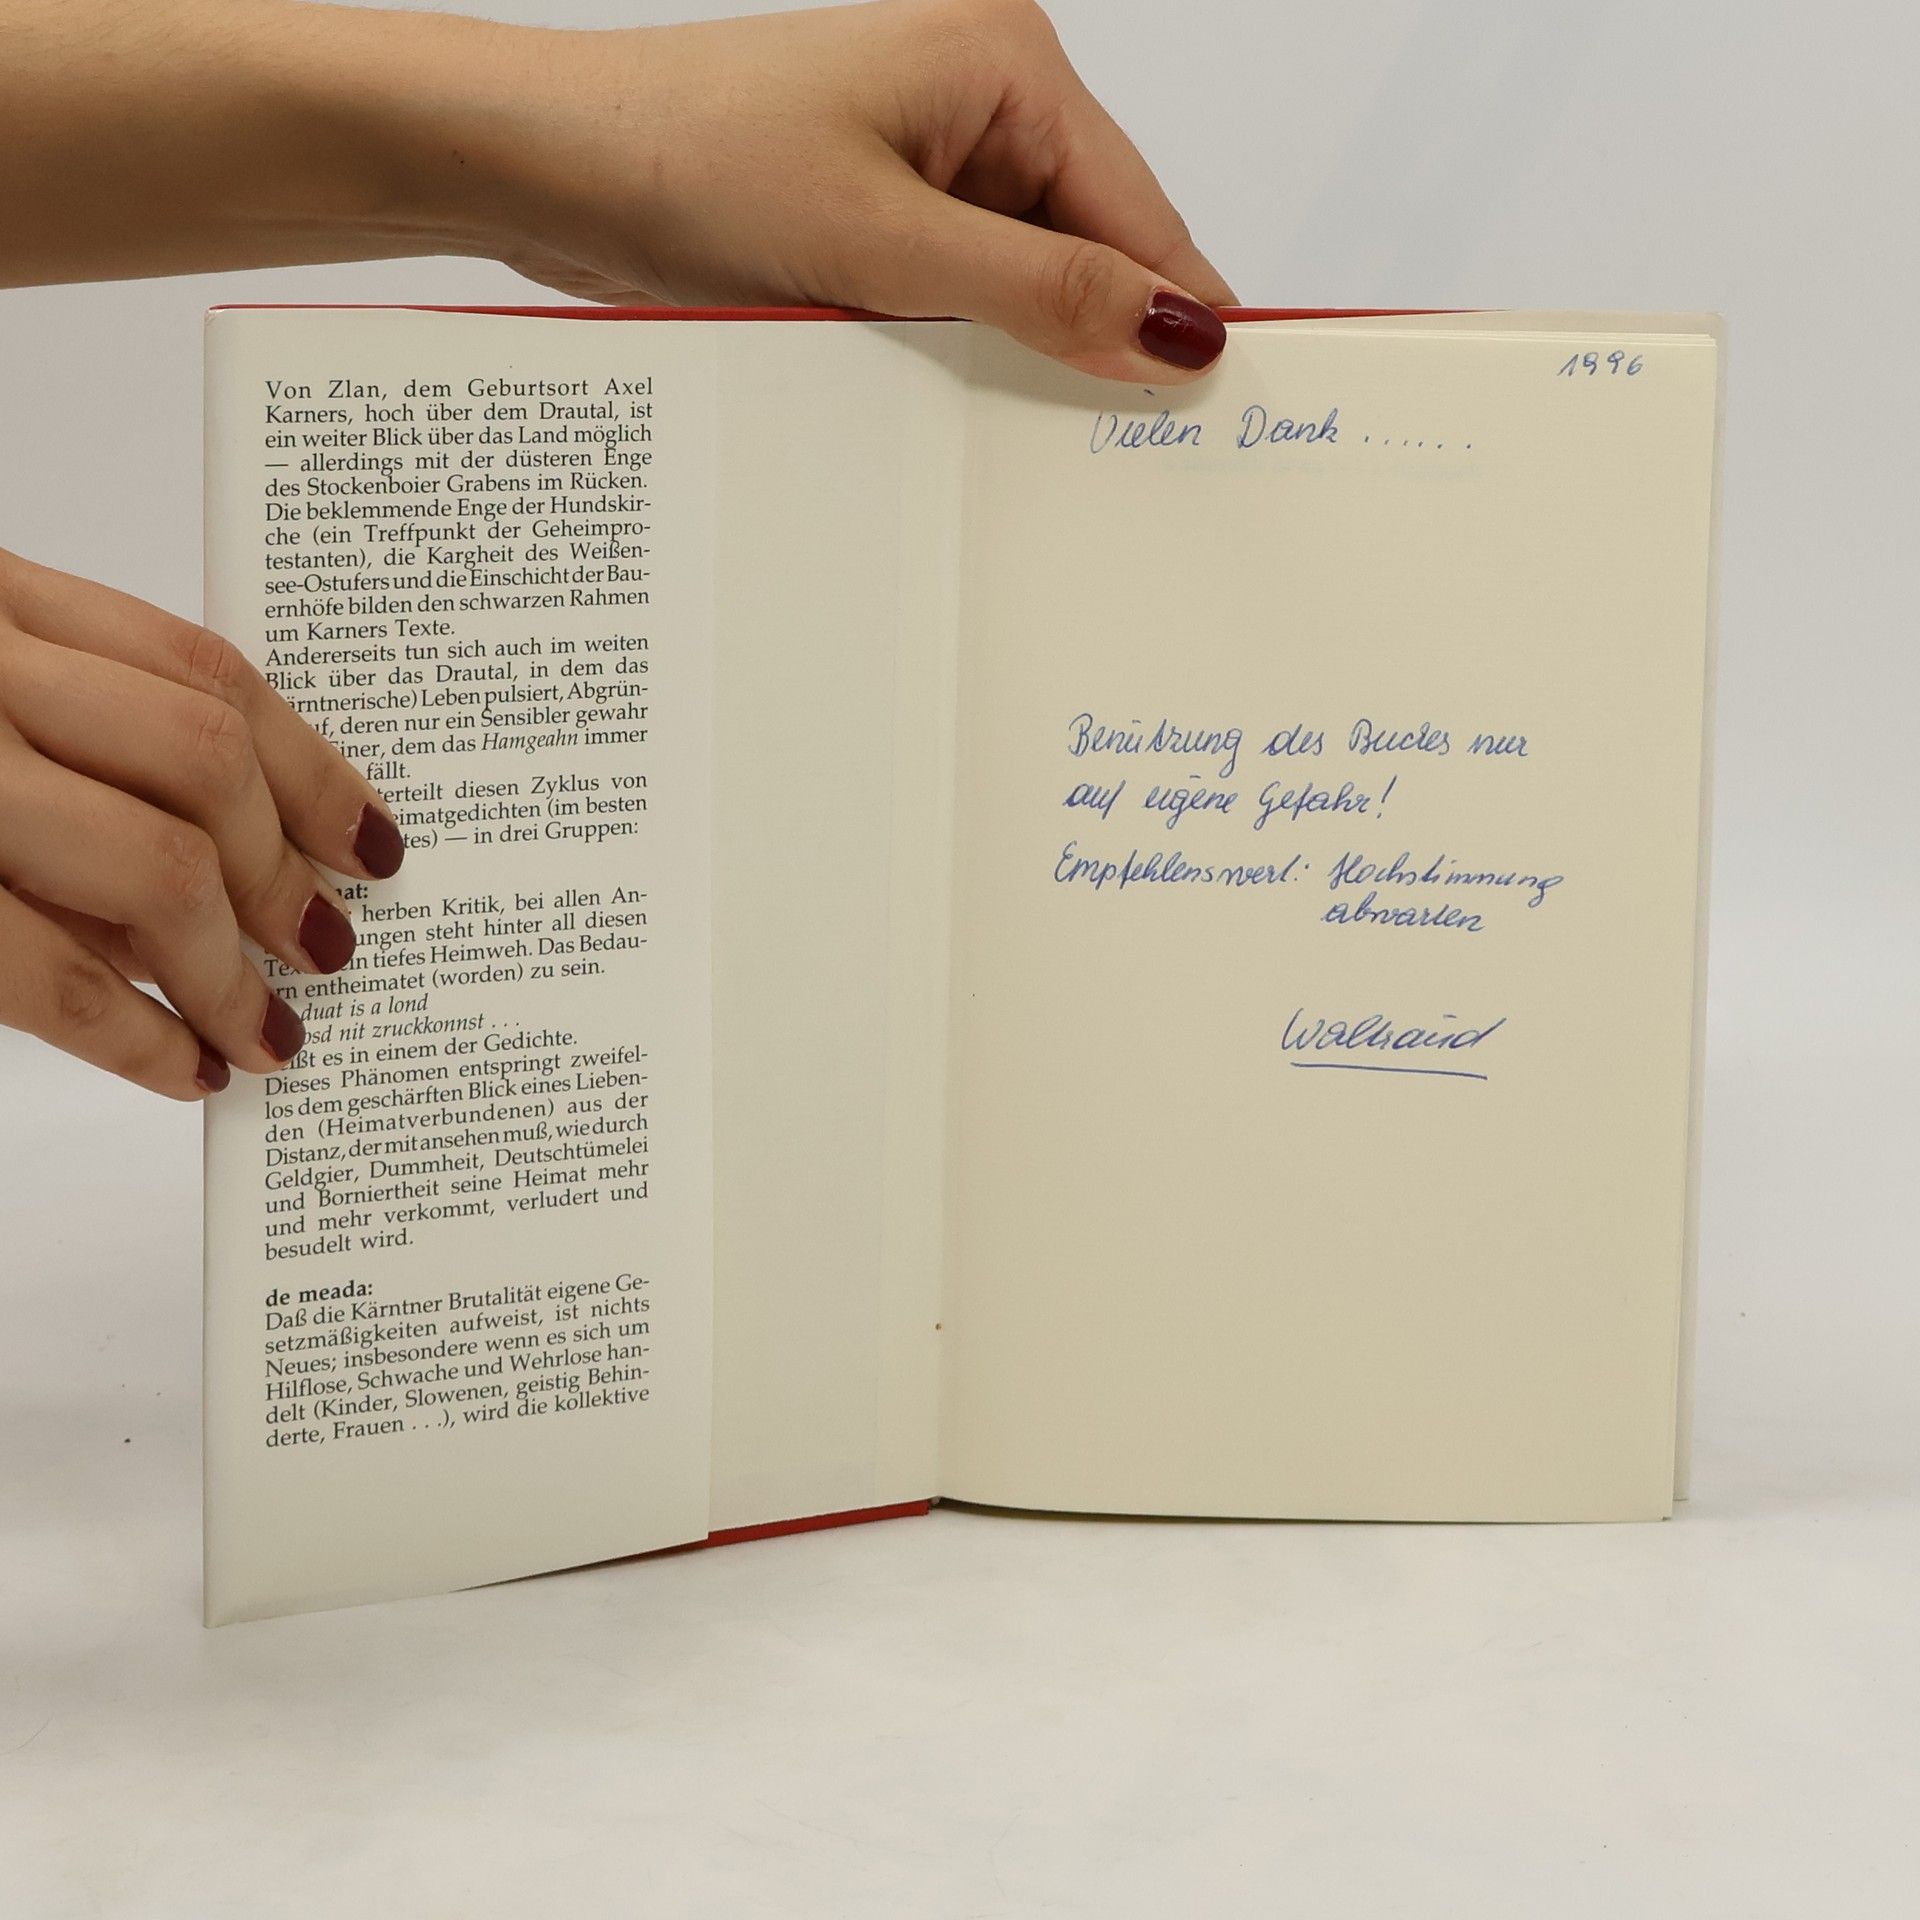 Von Zlan, dem Geburtsort Axel
Karners, hoch über dem Drautal, ist
ein weiter Blick über das Land möglich
— allerdings mit der düsteren Enge
des Stockenboier Grabens im Rücken.
Die beklemmende Enge der Hundskir-
che (ein Treffpunkt der Geheimpro-
testanten), die Kargheit des Weißen-
see-Ostufers und die Einschicht der Bau-
ernhöfe bilden den schwarzen Rahmen
um Karners Texte.
Andererseits tun sich auch im weiten
Blick über das Drautal, in dem das
ärntnerische) Leben pulsiert, Abgrün-
uf, deren nur ein Sensibler gewahr
Einer, dem das Hamgeahn immer
fällt.
terteilt diesen Zyklus von
eimatgedichten (im besten
tes) — in drei Gruppen:
nat:
herben Kritik, bei allen An-
ungen steht hinter all diesen
Tex in tiefes Heimweh. Das Bedau-
rn entheimatet (worden) zu sein.
duat is a lond
osd nit zruckkonnst . . .
eißt es in einem der Gedichte.
Dieses Phänomen entspringt zweifel-
los dem geschärften Blick eines Lieben-
den (Heimatverbundenen) aus der
Distanz, der mitansehen muß, wie durch
Geldgier, Dummheit, Deutschtümelei
und Borniertheit seine Heimat mehr
und mehr verkommt, verludert und
besudelt wird.
de meada:
Daß die Kärntner Brutalität eigene Ge-
setzmäßigkeiten aufweist, ist nichts
Neues; insbesondere wenn es sich um
Hilflose, Schwache und Wehrlose han-
delt (Kinder, Slowenen, geistig Behin-
derte, Frauen . . .), wird die kollektive
1996
Vielen Dank ......
Benützung des Buches nur
auf eigene Gefahr!
Empfehlenswert: Hochstimmung
abwarten
Waltraud